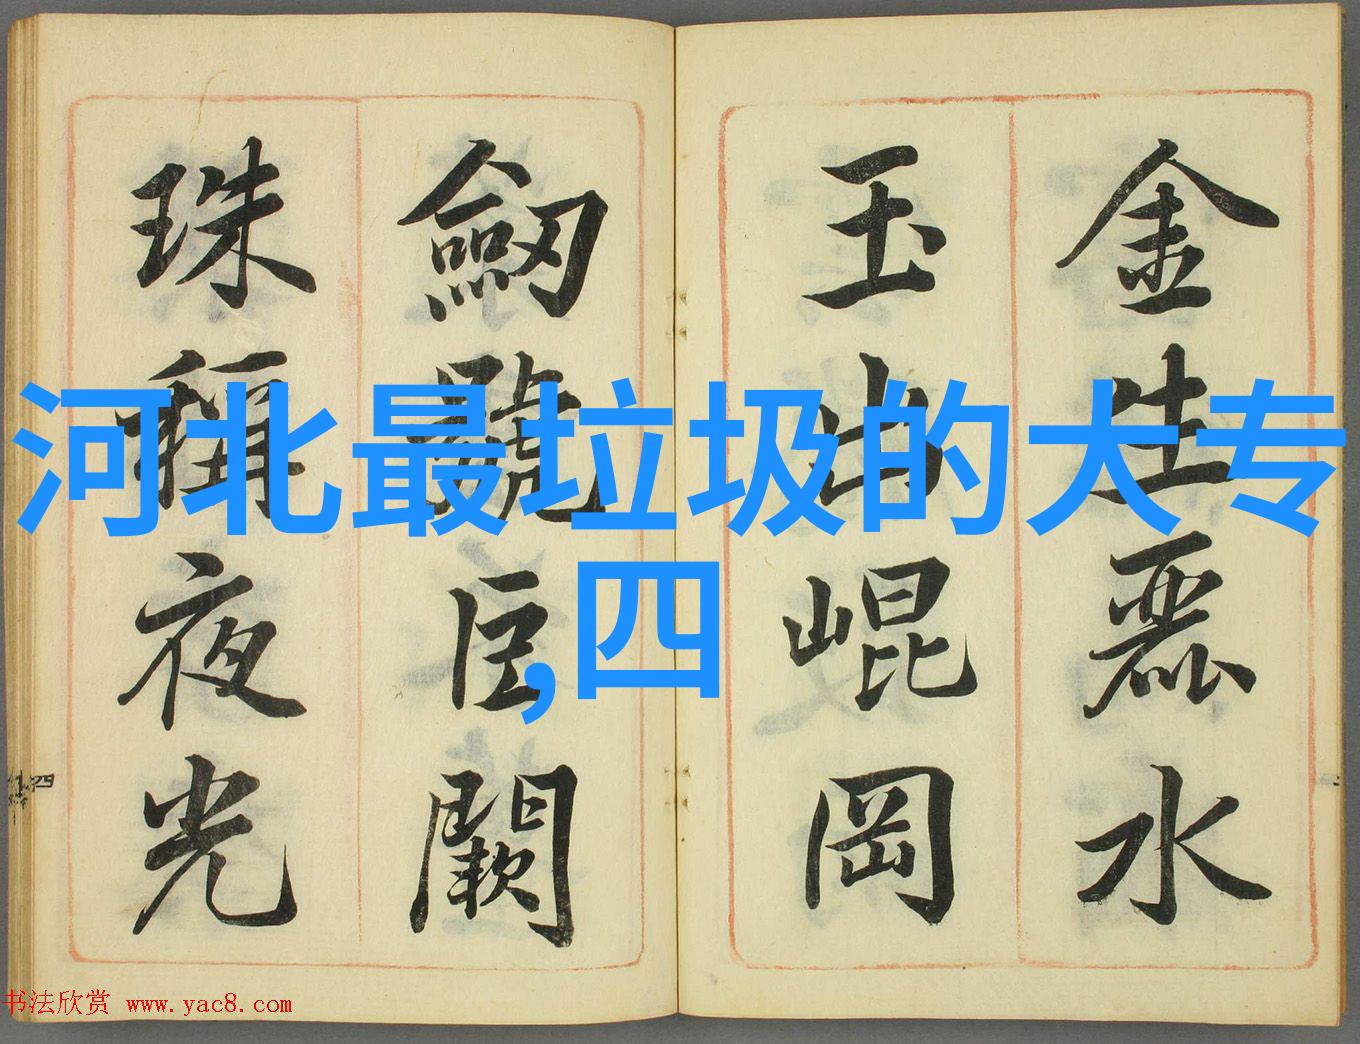 河北最垃圾的大专
,四
金生麗水
玉出崐岡
劒號巨闕
珠稱夜光
书法欣赏 www.yac8.com